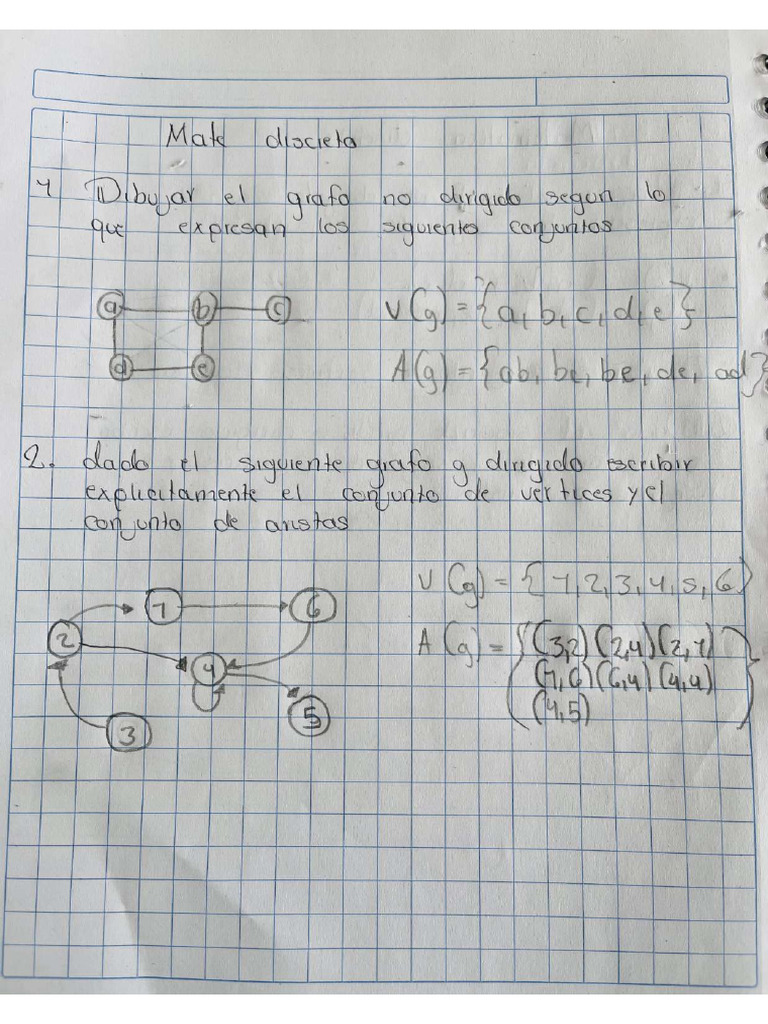 Mate discreta
1 Dibujar el grafo no dirigido segun lo
que expresan los siguientes conjuntos
a b c
V(g) = {a, b, c, d, e}
d e
A(g) = {ab, bc, be, de, ad}
2. dado el siguiente grafo g dirigido escribir
explicitamente el conjunto de vertices y el
conjunto de aristas
V(g) = {1, 2, 3, 4, 5, 6}
1 6
2
A(g) = {(3,2)(2,4)(2,1)
4
(1,6)(6,4)(4,4)
5
(4,5)}
3